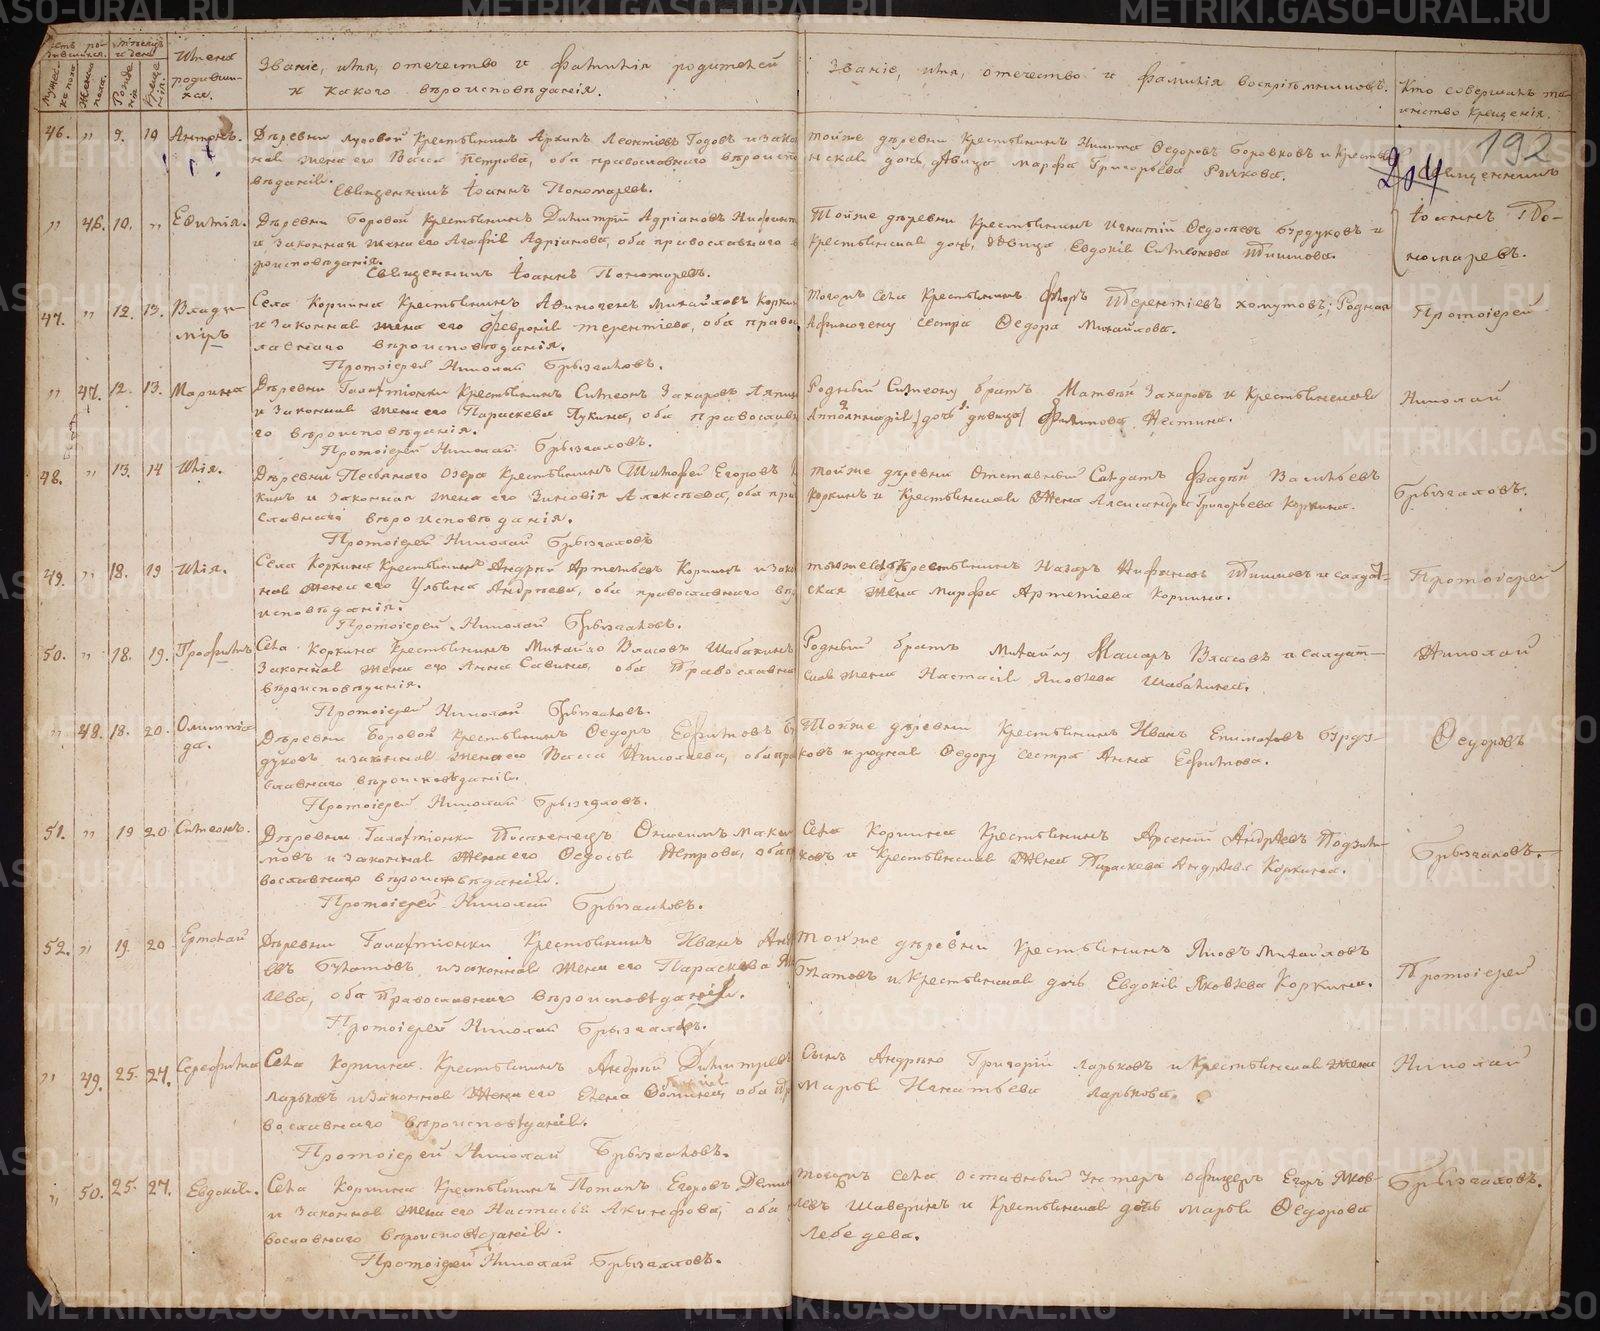 Счетъ родившихся.
Мѣсяцъ и день
Мужеска пола
Женска пола.
Рожденія
Крещенія.
Имена родившихся.
Званіе, имя, отечество и фамилія родителей
и какого вѣроисповѣданія.
Званіе, имя, отечество и фамилія воспріемниковъ.
Кто совершалъ таинство крещенія.
192
204
46. " 9. 10 Антонъ.
Деревни Луговой Крестьянинъ Архипъ Леонтіевъ Годовъ и законная жена его Васса Петрова, оба православнаго вѣроисповѣданія.
Священникъ Іоаннъ Пономаревъ.
тойже деревни Крестьянинъ Никита Ѳедоровъ Боровковъ и крестьянская дочь дѣвица Марфа Григорьева
Священникъ
" 46. 10. " Евѳимія.
Деревни Боровой Крестьянинъ Димитрій Адріановъ
и законная жена его Агафія Адріанова, оба православнаго вѣроисповѣданія.
Священникъ Іоаннъ Пономаревъ.
Тойже деревни Крестьянинъ Игнатій Ѳедосѣевъ Бурдуковъ и
Крестьянская дочь, дѣвица Евдокія Симеонова
Іоаннъ Пономаревъ.
47. " 12. 13. Владиміръ
Села Коркина Крестьянинъ Аѳиногенъ Михайловъ Коркинъ
и законная жена его Февронія Терентіева, оба православнаго вѣроисповѣданія.
Протоіерей Николай Брызгаловъ.
Тогожъ села Крестьянинъ Флоръ Терентіевъ Хомутовъ; Родная
Аѳиногену сестра Ѳедора Михайлова.
Протоіерей
" 47. 12. 13. Марина
Деревни Галактіонки Крестьянинъ Симеонъ Захаровъ
и законная жена его Параскева Лукина, оба православнаго вѣроисповѣданія.
Протоіерей Николай Брызгаловъ.
Родный Симеону братъ Матвѣй Захаровъ и Крестьянская
Апполинарія дочь дѣвица Филипова
Николай
48. " 13. 14 Илія.
Деревни Песьянаго Озера Крестьянинъ Тимофей Егоровъ
и законная жена его Зиновія Алексѣева, оба православнаго вѣроисповѣданія.
Протоіерей Николай Брызгаловъ
тойже деревни Отставный Салдатъ Фадѣй Васильевъ
Коркинъ и Крестьянская жена Александра Григорьева Коркина.
Брызгаловъ.
49. " 18. 19 Илія.
Села Коркина Крестьянинъ Андрей Артемьевъ Коркинъ и законная жена его Ульяна Андреева, оба православнаго вѣроисповѣданія.
Протоіерей Николай Брызгаловъ.
Крестьянинъ Назаръ и салдатская жена Марфа Артеміева Коркина.
Протоіерей
50. " 18. 19. Трофимъ
Села Коркина Крестьянинъ Михайло Власовъ Шабакинъ
законная жена его Анна Савина, оба Православнаго
вѣроисповѣданія.
Протоіерей Николай Брызгаловъ.
Родный братъ Михайлу Макаръ Власовъ и салдатская жена Настасія Яковлева Шабакина.
Николай
" 48. 18. 20. Олимпіада.
Деревни Боровой Крестьянинъ Ѳедоръ Ефимовъ Бурдуковъ и законная жена его Васса Николаева, оба православнаго вѣроисповѣданія.
Протоіерей Николай Брызгаловъ.
Тойже деревни Крестьянинъ Иванъ Епимаховъ Бурдуковъ и родная Ѳедору сестра Анна Ефимова.
Ѳедоровъ
51. " 19 20 Симеонъ.
Деревни Галактіонки Поселенецъ
и законная жена его Ѳедосья Петрова, оба православнаго вѣроисповѣданія.
Протоіерей Николай Брызгаловъ.
Села Коркина Крестьянинъ Арсеній Андреевъ
и Крестьянская жена Параскева Андреева Коркина.
Брызгаловъ.
52. " 19. 20 Ермолай
Деревни Галактіонки Крестьянинъ Иванъ
Булатовъ и законная жена его Параскева
оба Православнаго вѣроисповѣданія.
Протоіерей Николай Брызгаловъ.
Тойже деревни Крестьянинъ Яковъ Михайловъ
Булатовъ и Крестьянская дочь Евдокія Яковлева Коркина.
Протоіерей
" 49. 25. 27. Серафима
Села Коркина Крестьянинъ Андрей Димитріевъ
Ларьковъ и законная жена его Елена оба православнаго вѣроисповѣданія.
Протоіерей Николай Брызгаловъ.
Сынъ Андрея Григорій Ларьковъ и Крестьянская жена
Марья Игнатьева Ларькова.
Николай
" 50. 25. 27. Евдокія.
Села Коркина Крестьянинъ Потапъ Егоровъ
и законная жена его Настасья Акинфова, оба православнаго вѣроисповѣданія.
Протоіерей Николай Брызгаловъ.
тогожъ села отставный Унтеръ офицеръ Егоръ Яковлевъ Шаверинъ и Крестьянская дочь Марья Ѳедорова
Лебедева.
Брызгаловъ.
METRIKI.GASO-URAL.RU